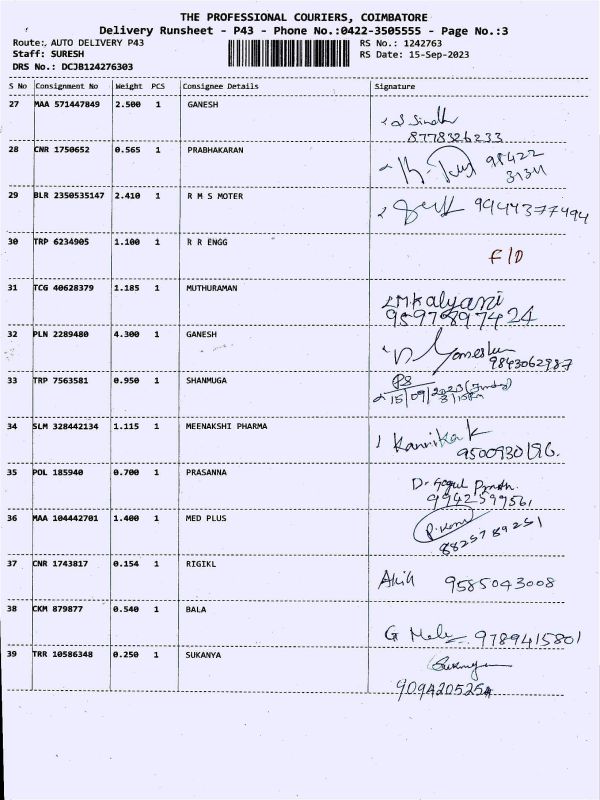 THE PROFESSIONAL COURIERS, COIMBATORE
Delivery Runsheet - P43 - Phone No.:0422-3505555 - Page No.:3
Route:, AUTO DELIVERY P43 RS No.: 1242763
Staff: SURESH RS Date: 15-Sep-2023
DRS No.: DCJB124276303
S No Consignment No Weight PCS Consignee Details Signature
27 MAA 571447849 2.500 1 GANESH
8778326233
28 CNR 1750652 0.565 1 PRABHAKARAN
98422
31311
29 BLR 2350535147 2.410 1 R M S MOTER 9944377494
30 TRP 6234905 1.100 1 R R ENGG
F/D
31 TCG 40628379 1.185 1 MUTHURAMAN
M.Kalyani
9597897424
32 PLN 2289480 4.300 1 GANESH
9843062987
33 TRP 7563581 0.950 1 SHANMUGA
15/09/2023
34 SLM 328442134 1.115 1 MEENAKSHI PHARMA
Kannika K
9500930196.
35 POL 185940 0.700 1 PRASANNA
9942599561
36 MAA 104442701 1.400 1 MED PLUS
8825789251
37 CNR 1743817 0.154 1 RIGIKL
Akil 9585043008
38 CKM 879877 0.540 1 BALA
G 9789415801
39 TRR 10586348 0.250 1 SUKANYA